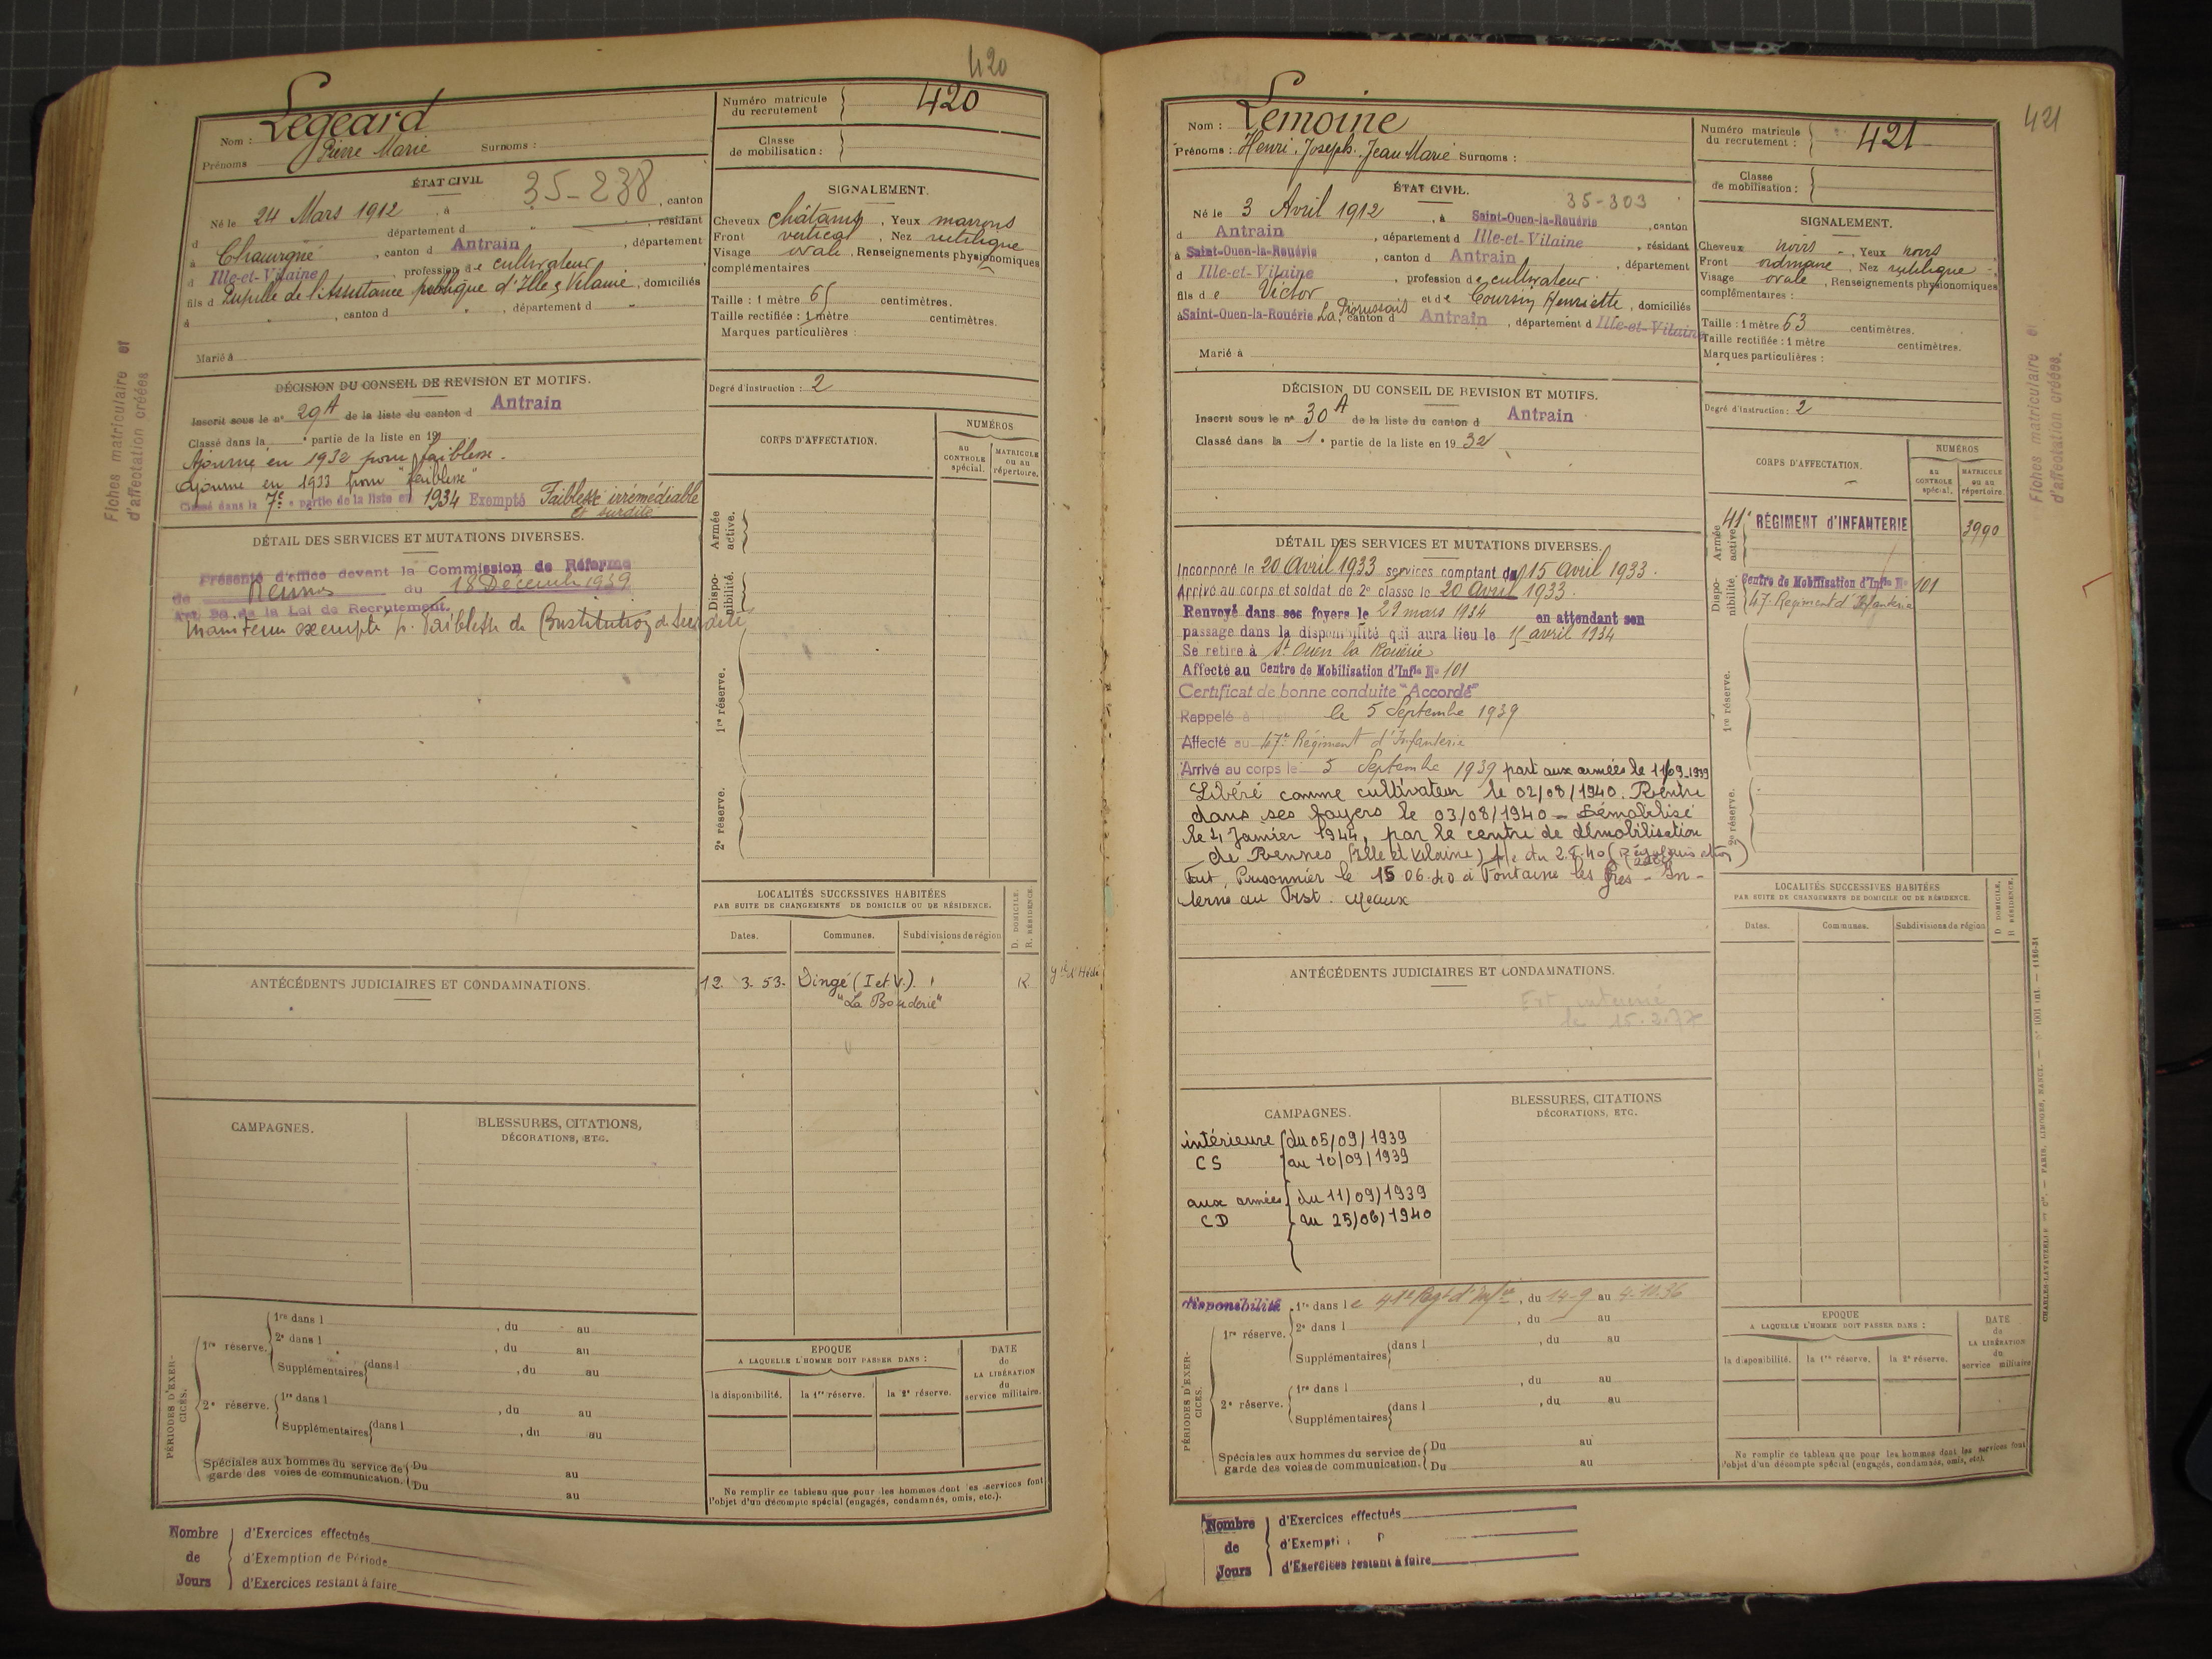 420
Nom : Legeard
Prénoms Pierre Marie Surnoms :
Numéro matricule du recrutement 420
Classe de mobilisation :
ÉTAT CIVIL
35-238
Né le 24 Mars 1912, à , canton
d département d résidant
à Chauvigné, canton d Antrain, département
d Ille-et-Vilaine, profession de cultivateur
fils d Pupille de l'Assistance publique d'Ille & Vilaine, domiciliés
à " , canton d " , département d "
Marié à
SIGNALEMENT.
Cheveux châtains, Yeux marrons
Front vertical, Nez rectiligne
Visage ovale, Renseignements physionomiques
complémentaires
Taille : 1 mètre 65 centimètres.
Taille rectifiée : 1 mètre centimètres.
Marques particulières :
Degré d'instruction : 2
Fiches matriculaire et
d'affectation créées
DÉCISION DU CONSEIL DE REVISION ET MOTIFS.
Inscrit sous le n° 29A de la liste du canton d Antrain
Classé dans la e partie de la liste en 19
Ajourné en 1932 pour faiblesse.
Ajourné en 1933 pour "faiblesse"
Classé dans la 7e partie de la liste en 1934 Exempté Faiblesse irrémédiable
et surdité
CORPS D'AFFECTATION.
NUMÉROS
AU CONTROLE spécial.
MATRICULE ou au répertoire.
Armée active.
Disponibilité.
1re réserve.
2e réserve.
DÉTAIL DES SERVICES ET MUTATIONS DIVERSES.
Présenté d'office devant la Commission de Réforme
de Rennes du 18 Décembre 1939
Art. 20 de la Loi de Recrutement.
Maintenu exempté p. faiblesse de Constitution & surdité
LOCALITÉS SUCCESSIVES HABITÉES
PAR SUITE DE CHANGEMENTS DE DOMICILE OU DE RÉSIDENCE.
D. DOMICILE.
R. RÉSIDENCE.
Dates. Communes. Subdivisions de région
12. 3. 53. Dingé (I et V.) R
"La Bouderie"
ANTÉCÉDENTS JUDICIAIRES ET CONDAMNATIONS.
CAMPAGNES.
BLESSURES, CITATIONS,
DÉCORATIONS, ETC.
PÉRIODES D'EXERCICES.
1re réserve. 1re dans l , du au
2e dans l , du au
Supplémentaires dans l , du au
2e réserve. 1re dans l , du au
Supplémentaires dans l , du au
Spéciales aux hommes du service de garde des voies de communication. Du au
Du au
EPOQUE
A LAQUELLE L'HOMME DOIT PASSER DANS :
la disponibilité. la 1re réserve. la 2e réserve.
DATE de LA LIBÉRATION du service militaire.
Ne remplir ce tableau que pour les hommes dont les services font
l'objet d'un décompte spécial (engagés, condamnés, omis, etc.).
Nombre de Jours
d'Exercices effectués
d'Exemption de Période
d'Exercices restant à faire
421
Nom : Lemoine
Prénoms : Henri, Joseph, Jean Marie Surnoms :
Numéro matricule du recrutement : 421
Classe de mobilisation :
ÉTAT CIVIL.
35-303
Né le 3 Avril 1912, à Saint-Ouen-la-Rouërie, canton
d Antrain, département d Ille-et-Vilaine, résidant
à Saint-Ouen-la-Rouërie, canton d Antrain, département
d Ille-et-Vilaine, profession de cultivateur
fils de Victor et de Coursin Henriette, domiciliés
à Saint-Ouen-la-Rouërie, canton d Antrain, département d Ille-et-Vilaine
Marié à
SIGNALEMENT.
Cheveux noirs, Yeux noirs
Front ordinaire, Nez rectiligne
Visage ovale, Renseignements physionomiques
complémentaires :
Taille : 1 mètre 63 centimètres.
Taille rectifiée : 1 mètre centimètres.
Marques particulières :
Degré d'instruction : 2
Fiches matriculaire et
d'affectation créées.
DÉCISION DU CONSEIL DE REVISION ET MOTIFS.
Inscrit sous le n° 30A de la liste du canton d Antrain
Classé dans la 1e partie de la liste en 1932
CORPS D'AFFECTATION.
NUMÉROS
AU CONTROLE spécial.
MATRICULE ou au répertoire.
Armée active. 41e RÉGIMENT d'INFANTERIE 3990
Disponibilité. Centre de Mobilisation d'Infie N° 101
47e Régiment d'Infanterie
1re réserve.
2e réserve.
DÉTAIL DES SERVICES ET MUTATIONS DIVERSES.
Incorporé le 20 Avril 1933 services comptant du 15 avril 1933.
Arrivé au corps et soldat de 2e classe le 20 avril 1933.
Renvoyé dans ses foyers le 29 mars 1934 en attendant son
passage dans la disponibilité qui aura lieu le 15 avril 1934
Se retire à St Ouen la Rouërie
Affecté au Centre de Mobilisation d'Infie N° 101
Certificat de bonne conduite "Accordé"
Rappelé à le 5 Septembre 1939
Affecté au 47e Régiment d'Infanterie
Arrivé au corps le 5 Septembre 1939 part aux armées le 11/09_1939
Libéré comme cultivateur le 02/08/1940. Rentre
dans ses foyers le 03/08/1940 - Démobilisé
le 4 Janvier 1944, par le centre de démobilisation
de Rennes (Ille et Vilaine) p/c du 2.8.40
Fait Prisonnier le 15 06.40 à Fontaine les Grès - In-
terné au Frst. Meaux
LOCALITÉS SUCCESSIVES HABITÉES
PAR SUITE DE CHANGEMENTS DE DOMICILE OU DE RÉSIDENCE.
D DOMICILE.
R RÉSIDENCE.
Dates. Communes. Subdivisions de région
ANTÉCÉDENTS JUDICIAIRES ET CONDAMNATIONS.
CAMPAGNES.
intérieure du 05/09/1939
CS au 10/09/1939
aux armées du 11/09/1939
CD au 25/06/1940
BLESSURES, CITATIONS
DÉCORATIONS, ETC.
disponibilité
PÉRIODES D'EXERCICES.
1re réserve. 1re dans le 41e Regt d'Infie, du 14-9 au
2e dans l , du au
Supplémentaires dans l , du au
2e réserve. 1re dans l , du au
Supplémentaires dans l , du au
Spéciales aux hommes du service de garde des voies de communication. Du au
Du au
EPOQUE
A LAQUELLE L'HOMME DOIT PASSER DANS :
la disponibilité. la 1re réserve. la 2e réserve.
DATE de LA LIBÉRATION du service militaire
Ne remplir ce tableau que pour les hommes dont les services font
l'objet d'un décompte spécial (engagés, condamnés, omis, etc.).
Nombre de Jours
d'Exercices effectués
d'Exempti
d'Exercices restant à faire